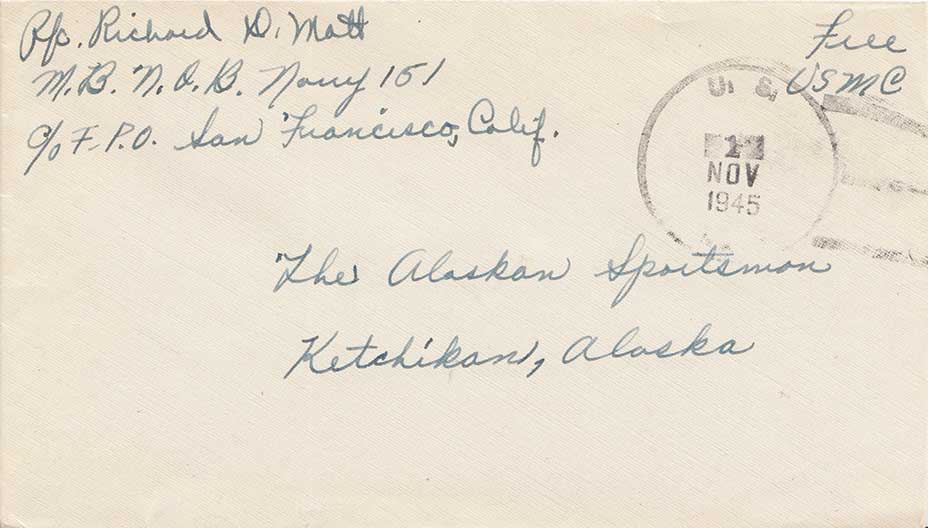 Pfc. Richard D. Matt
M.B. N.O.B. Navy 151
c/o F.P.O. San Francisco, Calif.
Free
USMC
U. S.
1
NOV
1945
The Alaskan Sportsman
Ketchikan, Alaska